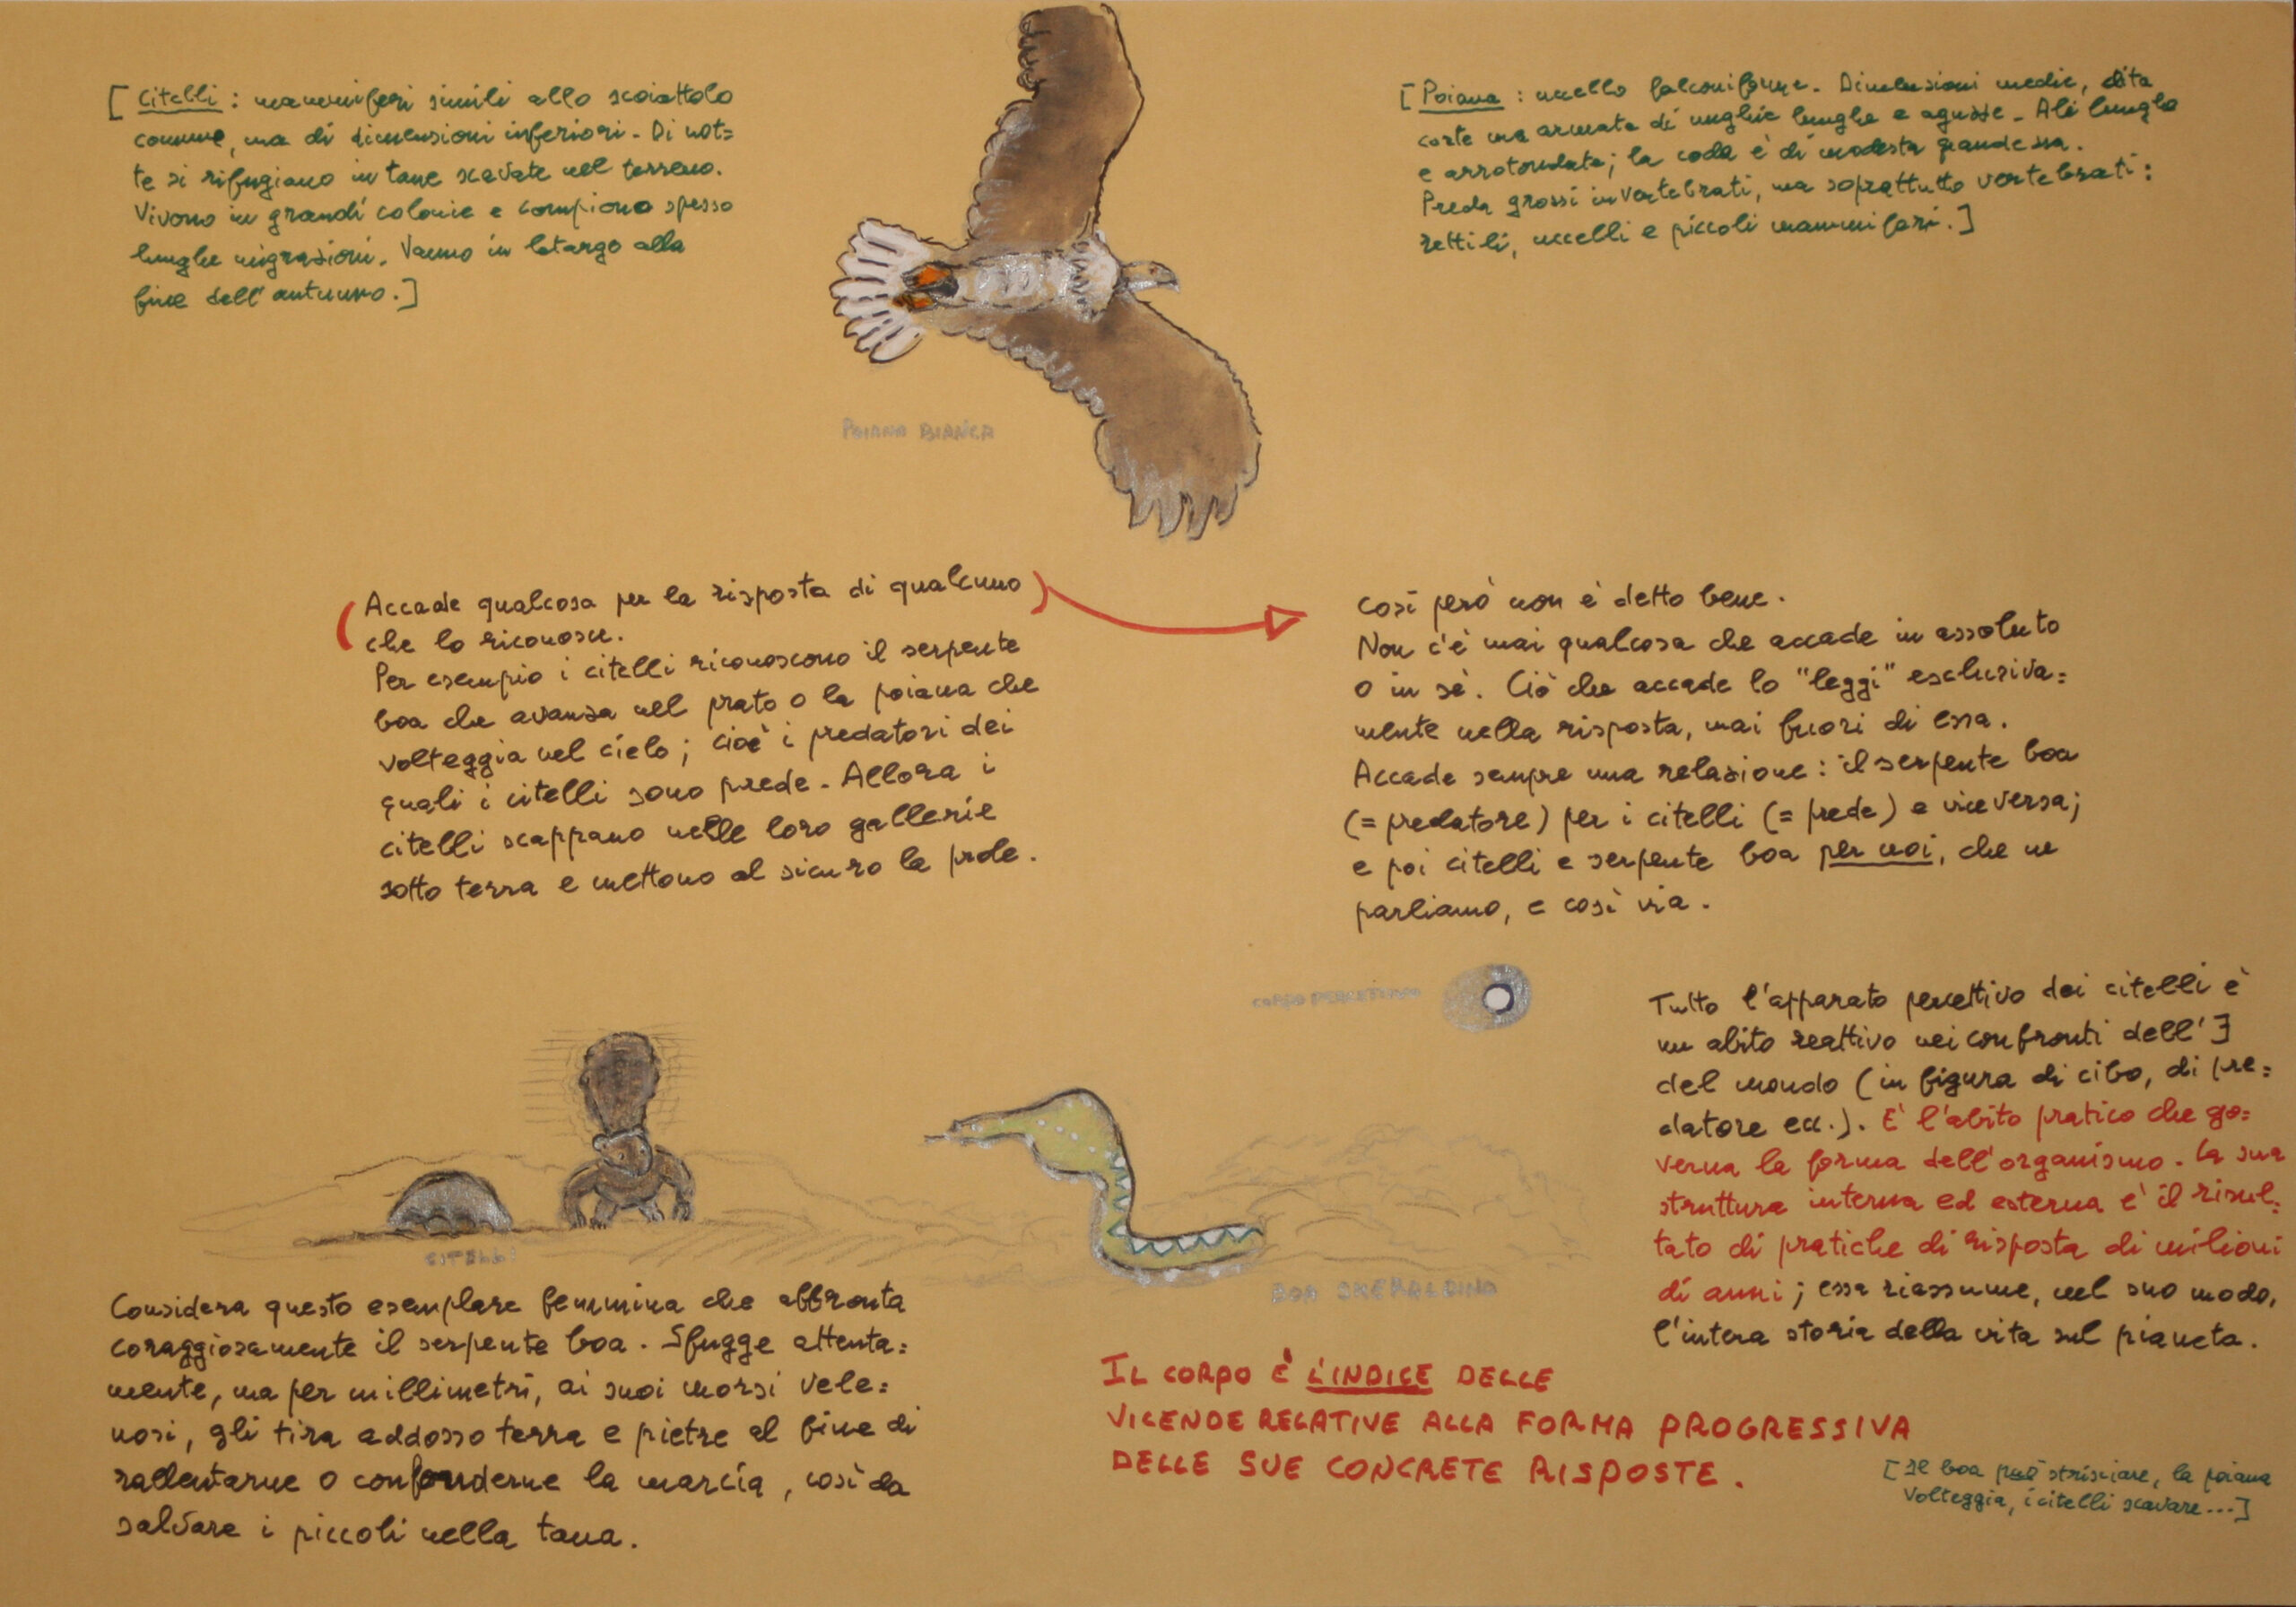 [Citelli : mammiferi simili allo scoiattolo
comune, ma di dimensioni inferiori. Di not=
te si rifugiano in tane scavate nel terreno.
Vivono in grandi colonie e compiono spesso
lunghe migrazioni. Vanno in letargo alla
fine dell'autunno.]
[Poiana : uccello falconiforme. Dimensioni medie, dita
corte ma armate di unghie lunghe e aguzze. Ali lunghe
e arrotondate; la coda è di modesta grandezza.
Preda grossi invertebrati, ma soprattutto vertebrati:
rettili, uccelli e piccoli mammiferi.]
POIANA BIANCA
(Accade qualcosa per la risposta di qualcuno)
che lo riconosce.
Per esempio i citelli riconoscono il serpente
boa che avanza nel prato o la poiana che
volteggia nel cielo; cioè i predatori dei
quali i citelli sono prede. Allora i
citelli scappano nelle loro gallerie
sotto terra e mettono al sicuro la prole.
Così però non è detto bene.
Non c'è mai qualcosa che accade in assoluto
o in sé. Ciò che accade lo "leggi" esclusiva=
mente nella risposta, mai fuori di essa.
Accade sempre una relazione: il serpente boa
(= predatore) per i citelli (= prede) e viceversa;
e poi citelli e serpente boa per noi, che ne
parliamo, e così via.
CORPO PERCETTIVO
Tutto l'apparato percettivo dei citelli è
un abito reattivo nei confronti dell'∃
del mondo (in figura di cibo, di pre=
datore ecc.). E' l'abito pratico che go=
verna la forma dell'organismo. La sua
struttura interna ed esterna è il risul=
tato di pratiche di risposta di milioni
di anni; essa riassume, nel suo modo,
l'intera storia della vita sul pianeta.
CITELLI
BOA SMERALDINO
Considera questo esemplare femmina che affronta
coraggiosamente il serpente boa. Sfugge attenta=
mente, ma per millimetri, ai suoi morsi vele=
nosi, gli tira addosso terra e pietre al fine di
rallentarne o confonderne la marcia, così da
salvare i piccoli nella tana.
IL CORPO È L'INDICE DELLE
VICENDE RELATIVE ALLA FORMA PROGRESSIVA
DELLE SUE CONCRETE RISPOSTE.
[Il boa può strisciare, la poiana
volteggia, i citelli scavare...]